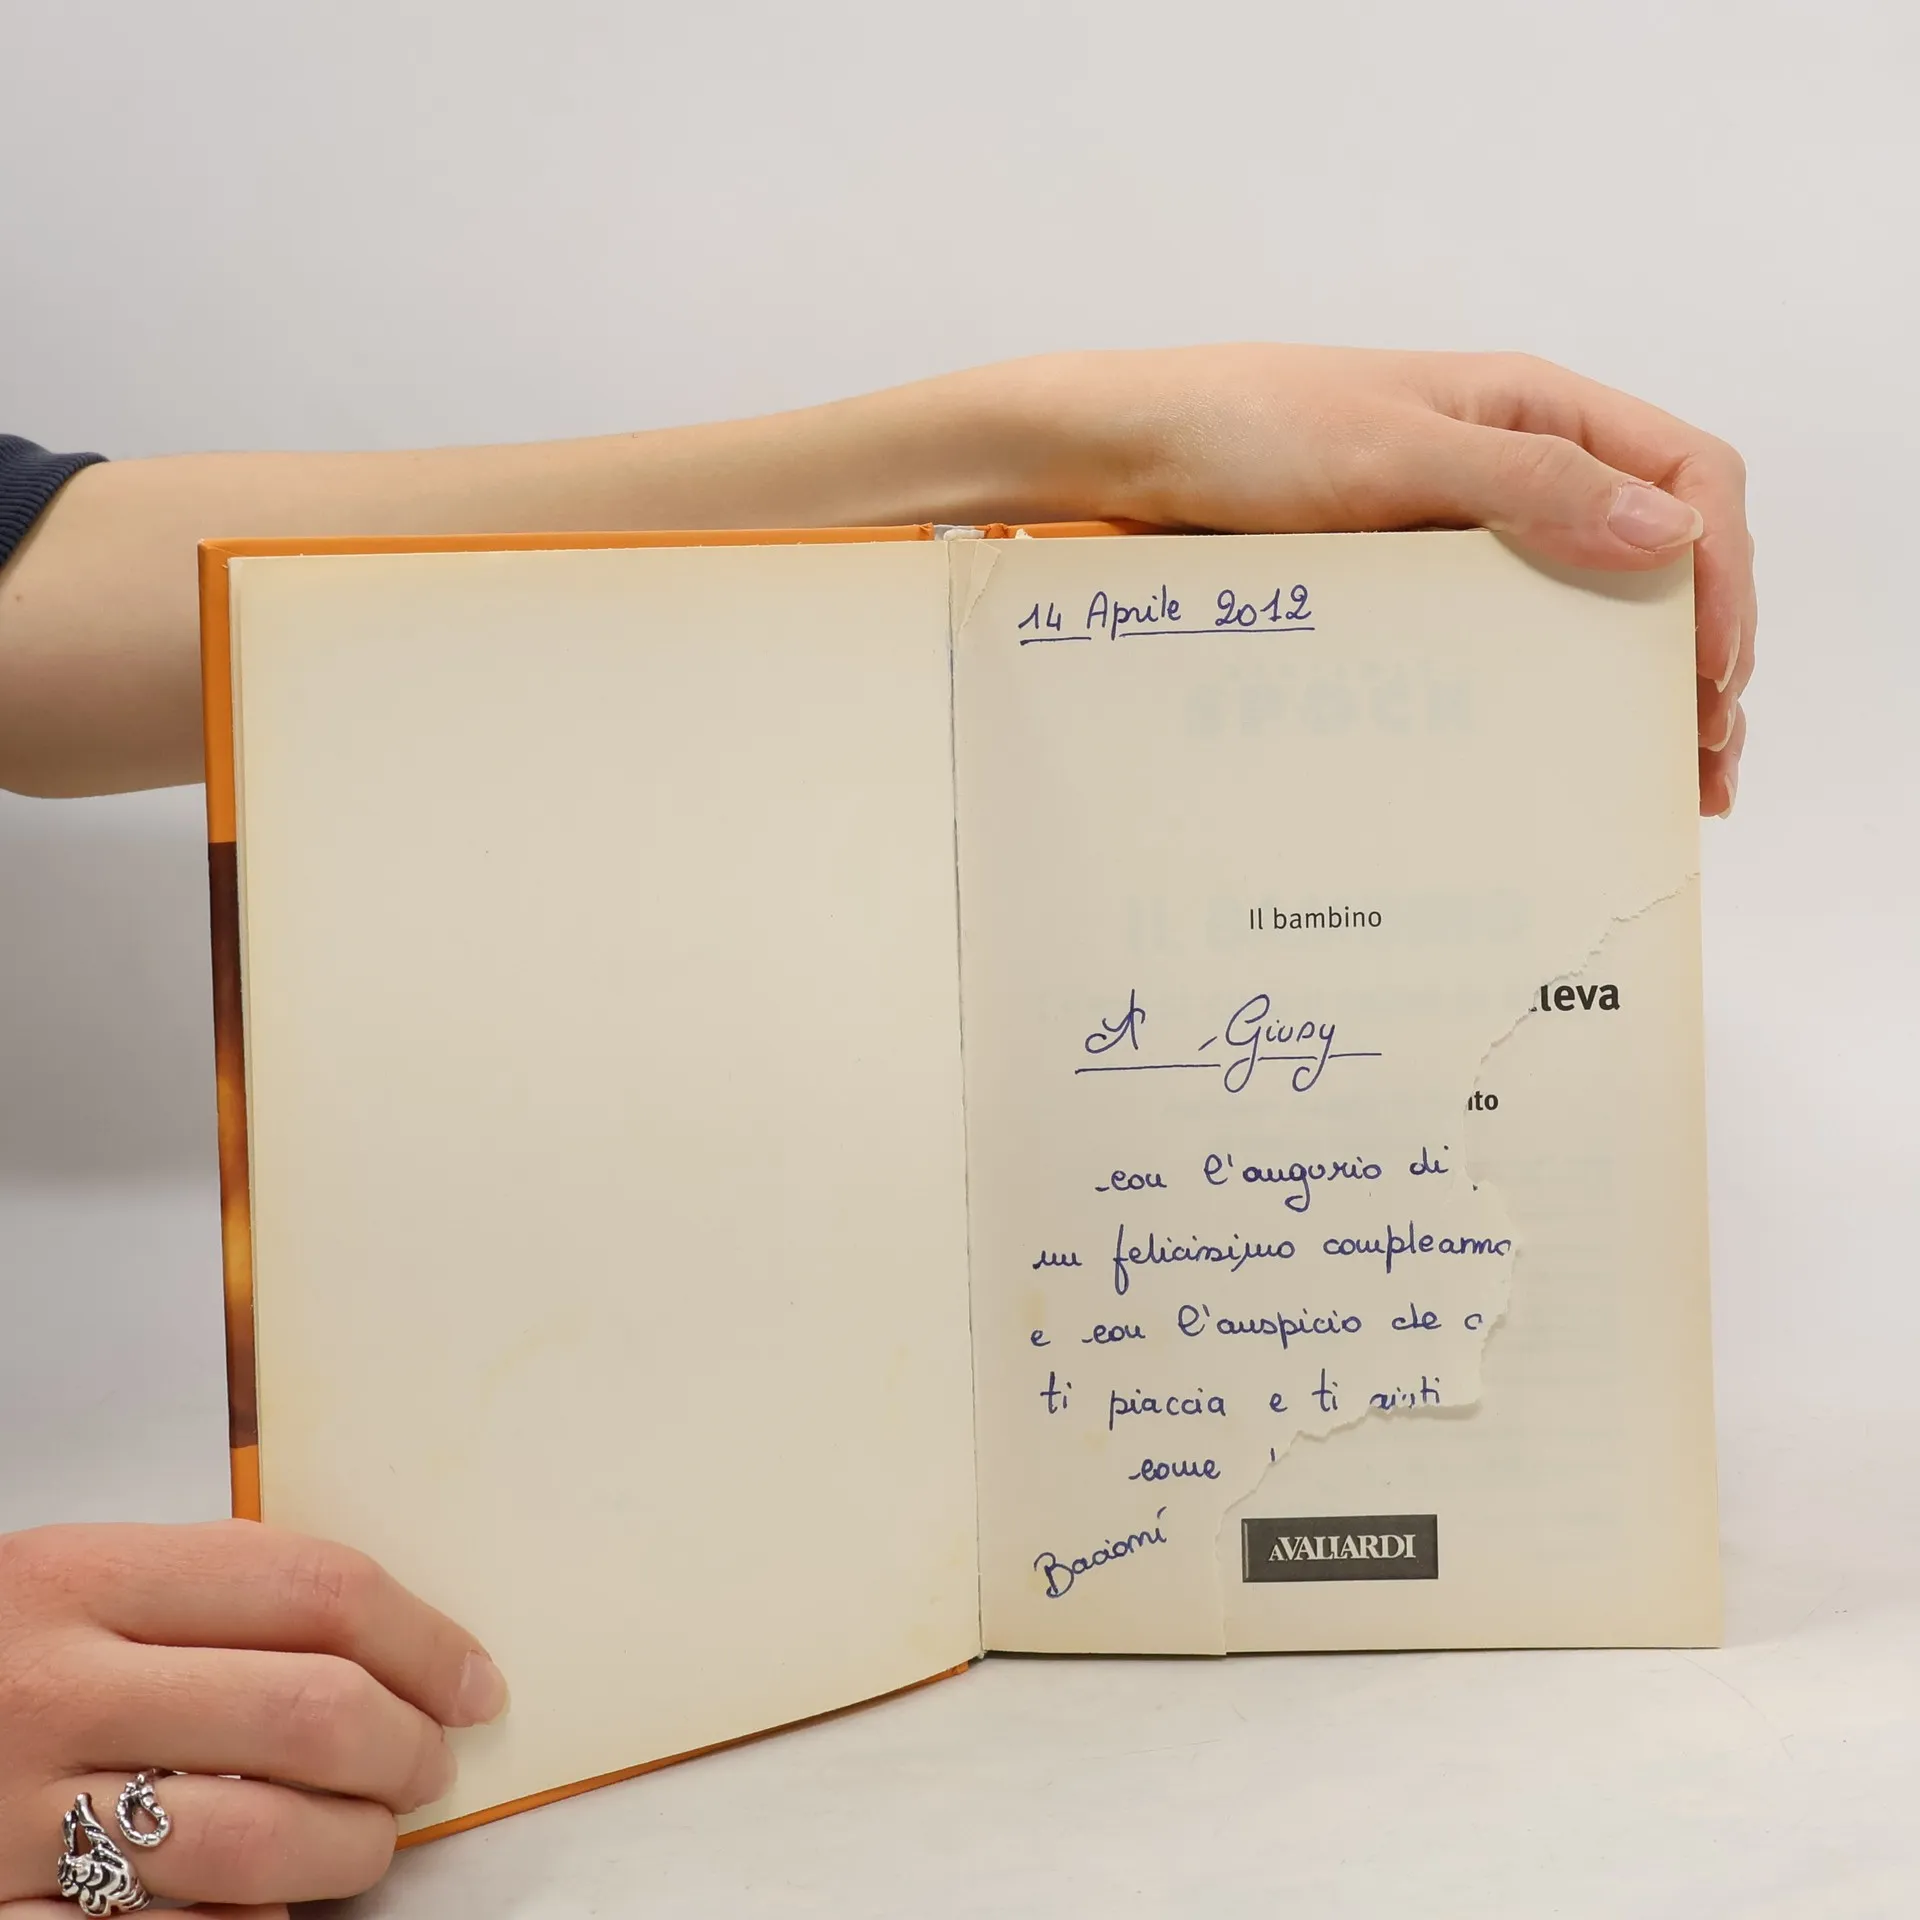 14 Aprile 2012
Il bambino
lleva
A Giusy
nto
con l'augurio di
un felicissimo compleanno
e con l'auspicio che
ti piaccia e ti
come
Bacioni
A.VALLARDI